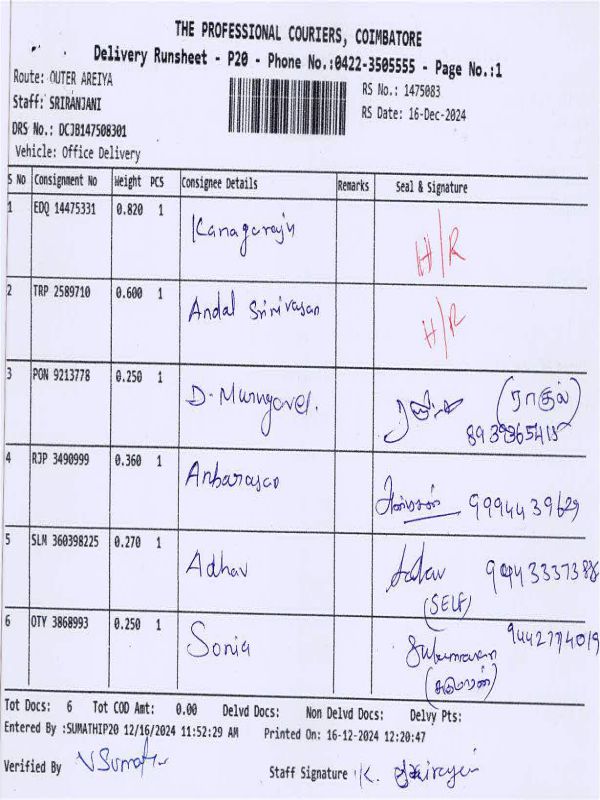 THE PROFESSIONAL COURIERS, COIMBATORE
Delivery Runsheet - P20 - Phone No.:0422-3505555 - Page No.:1
Route: OUTER AREIYA
RS No.: 1475083
Staff: SRIRANJANI
RS Date: 16-Dec-2024
DRS No.: DCJB147508301
Vehicle: Office Delivery
S No Consignment No Weight PCS Consignee Details Remarks Seal & Signature
1 EDQ 14475331 0.820 1 Kanagaraju H/R
2 TRP 2589710 0.600 1 Andal Srinivasan H/R
3 PON 9213778 0.250 1 D. Murugavel. (ராகுல்)
4 RJP 3490999 0.360 1 Anbarasan 9994439629
5 SLM 360398225 0.270 1 Adhav
(SELF)
6 OTY 3868993 0.250 1 Sonia 9442774019
Tot Docs: 6 Tot COD Amt: 0.00 Delvd Docs: Non Delvd Docs: Delvy Pts:
Entered By :SUMATHIP20 12/16/2024 11:52:29 AM Printed On: 16-12-2024 12:20:47
Verified By V Sumathi
Staff Signature K.